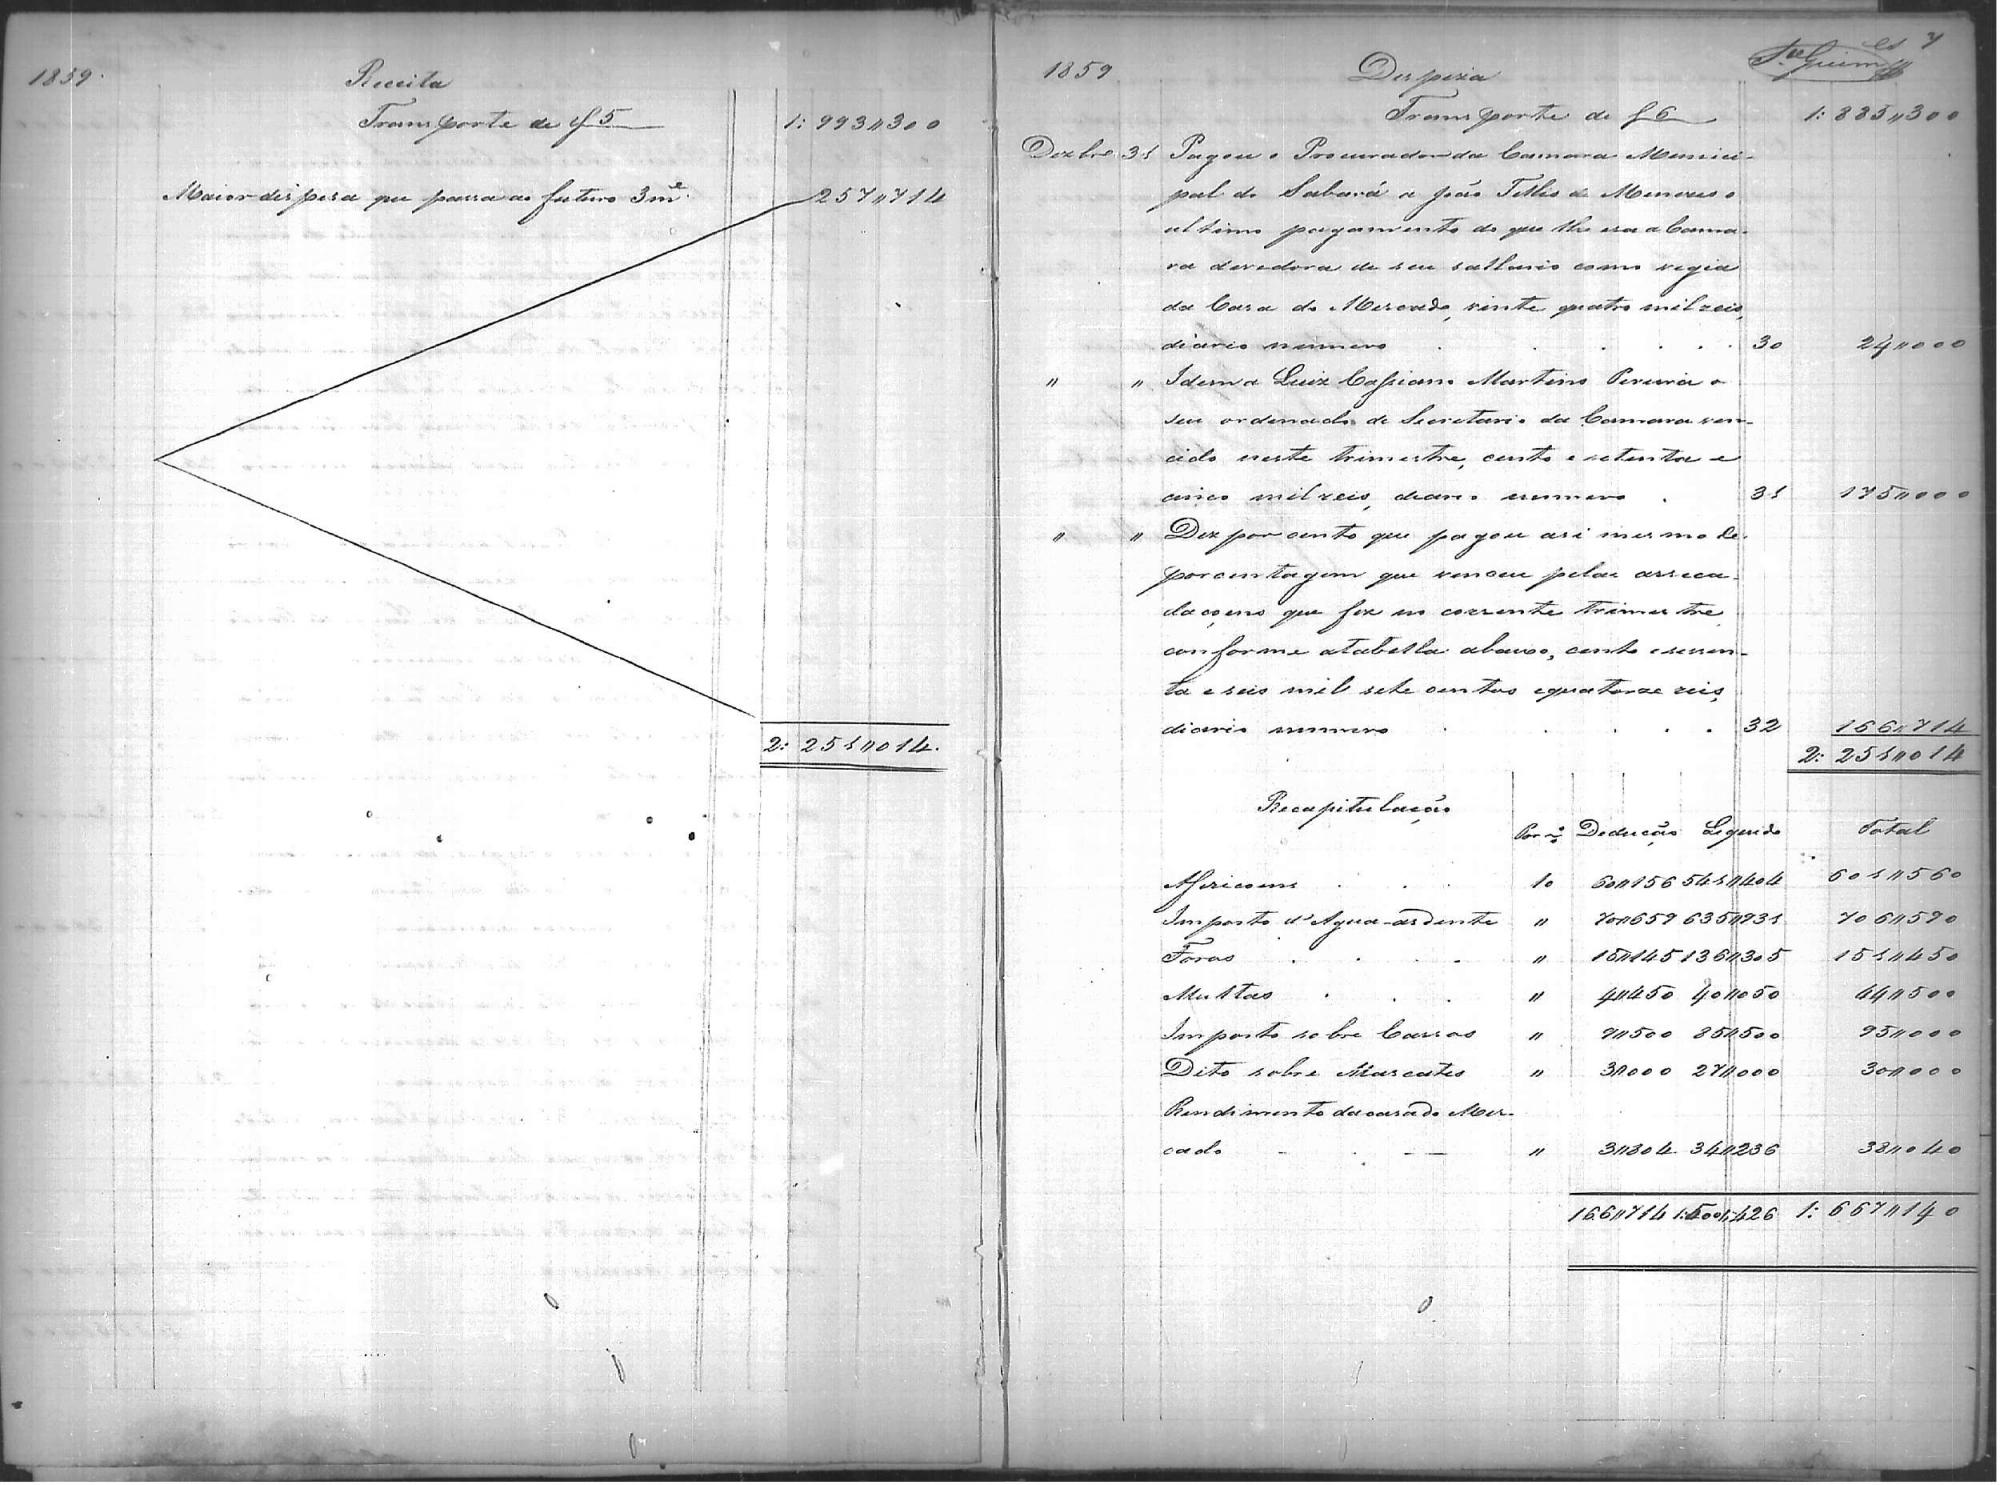 1859.
Receita
Transporte de f 5 1: 993"300
Maior despesa que passa ao futuro 3m.e 257"714
2: 251"014.
7
1859
Despeza
Transporte de f 6 1: 885"300
Dezbr.º 31 Pagou o Procurador da Camara Munici-
pal do Sabará a João Tellis de Meneses o
ultimo pagamento do que lhe era a Cama-
ra devedora de seu sallario como vigia
da Casa do Mercado, vinte quatro mil reis,
diario numero . . . . . 30 24"000
" " Idem a Luiz Cassiano Martins Pereira o
seu ordenado de Secretario da Camara ven-
cido neste trimestre, cento e setenta e
cinco mil reis, diario numero . 31 175"000
" " Dez por cento que pagou asi mesmo de
porcentagem que venceu pelas arreca-
daçoens que fez no corrente trimestre
conforme atabella abaixo, cento e sessen-
ta e seis mil sete centos equatorze reis,
diario numero . . . . 32 166"714
2: 251"014
Recapitulação Por % Deducção Liquido Total
Afericoens . . . 10 60"156 541"404 601"560
Imposto d'Agua-ardente " 70"659 635"931 706"590
Foros . . . . " 15"145 136"305 151"450
Multas . . . . " 4"450 40"050 44"500
Imposto sobre Carros " 9"500 85"500 95"000
Dito sobre Mascates " 3"000 27"000 30"000
Rendimento da casa do Mer-
cado - . - " 3"804 34"236 38"040
166"714 1:500"426 1: 667"140